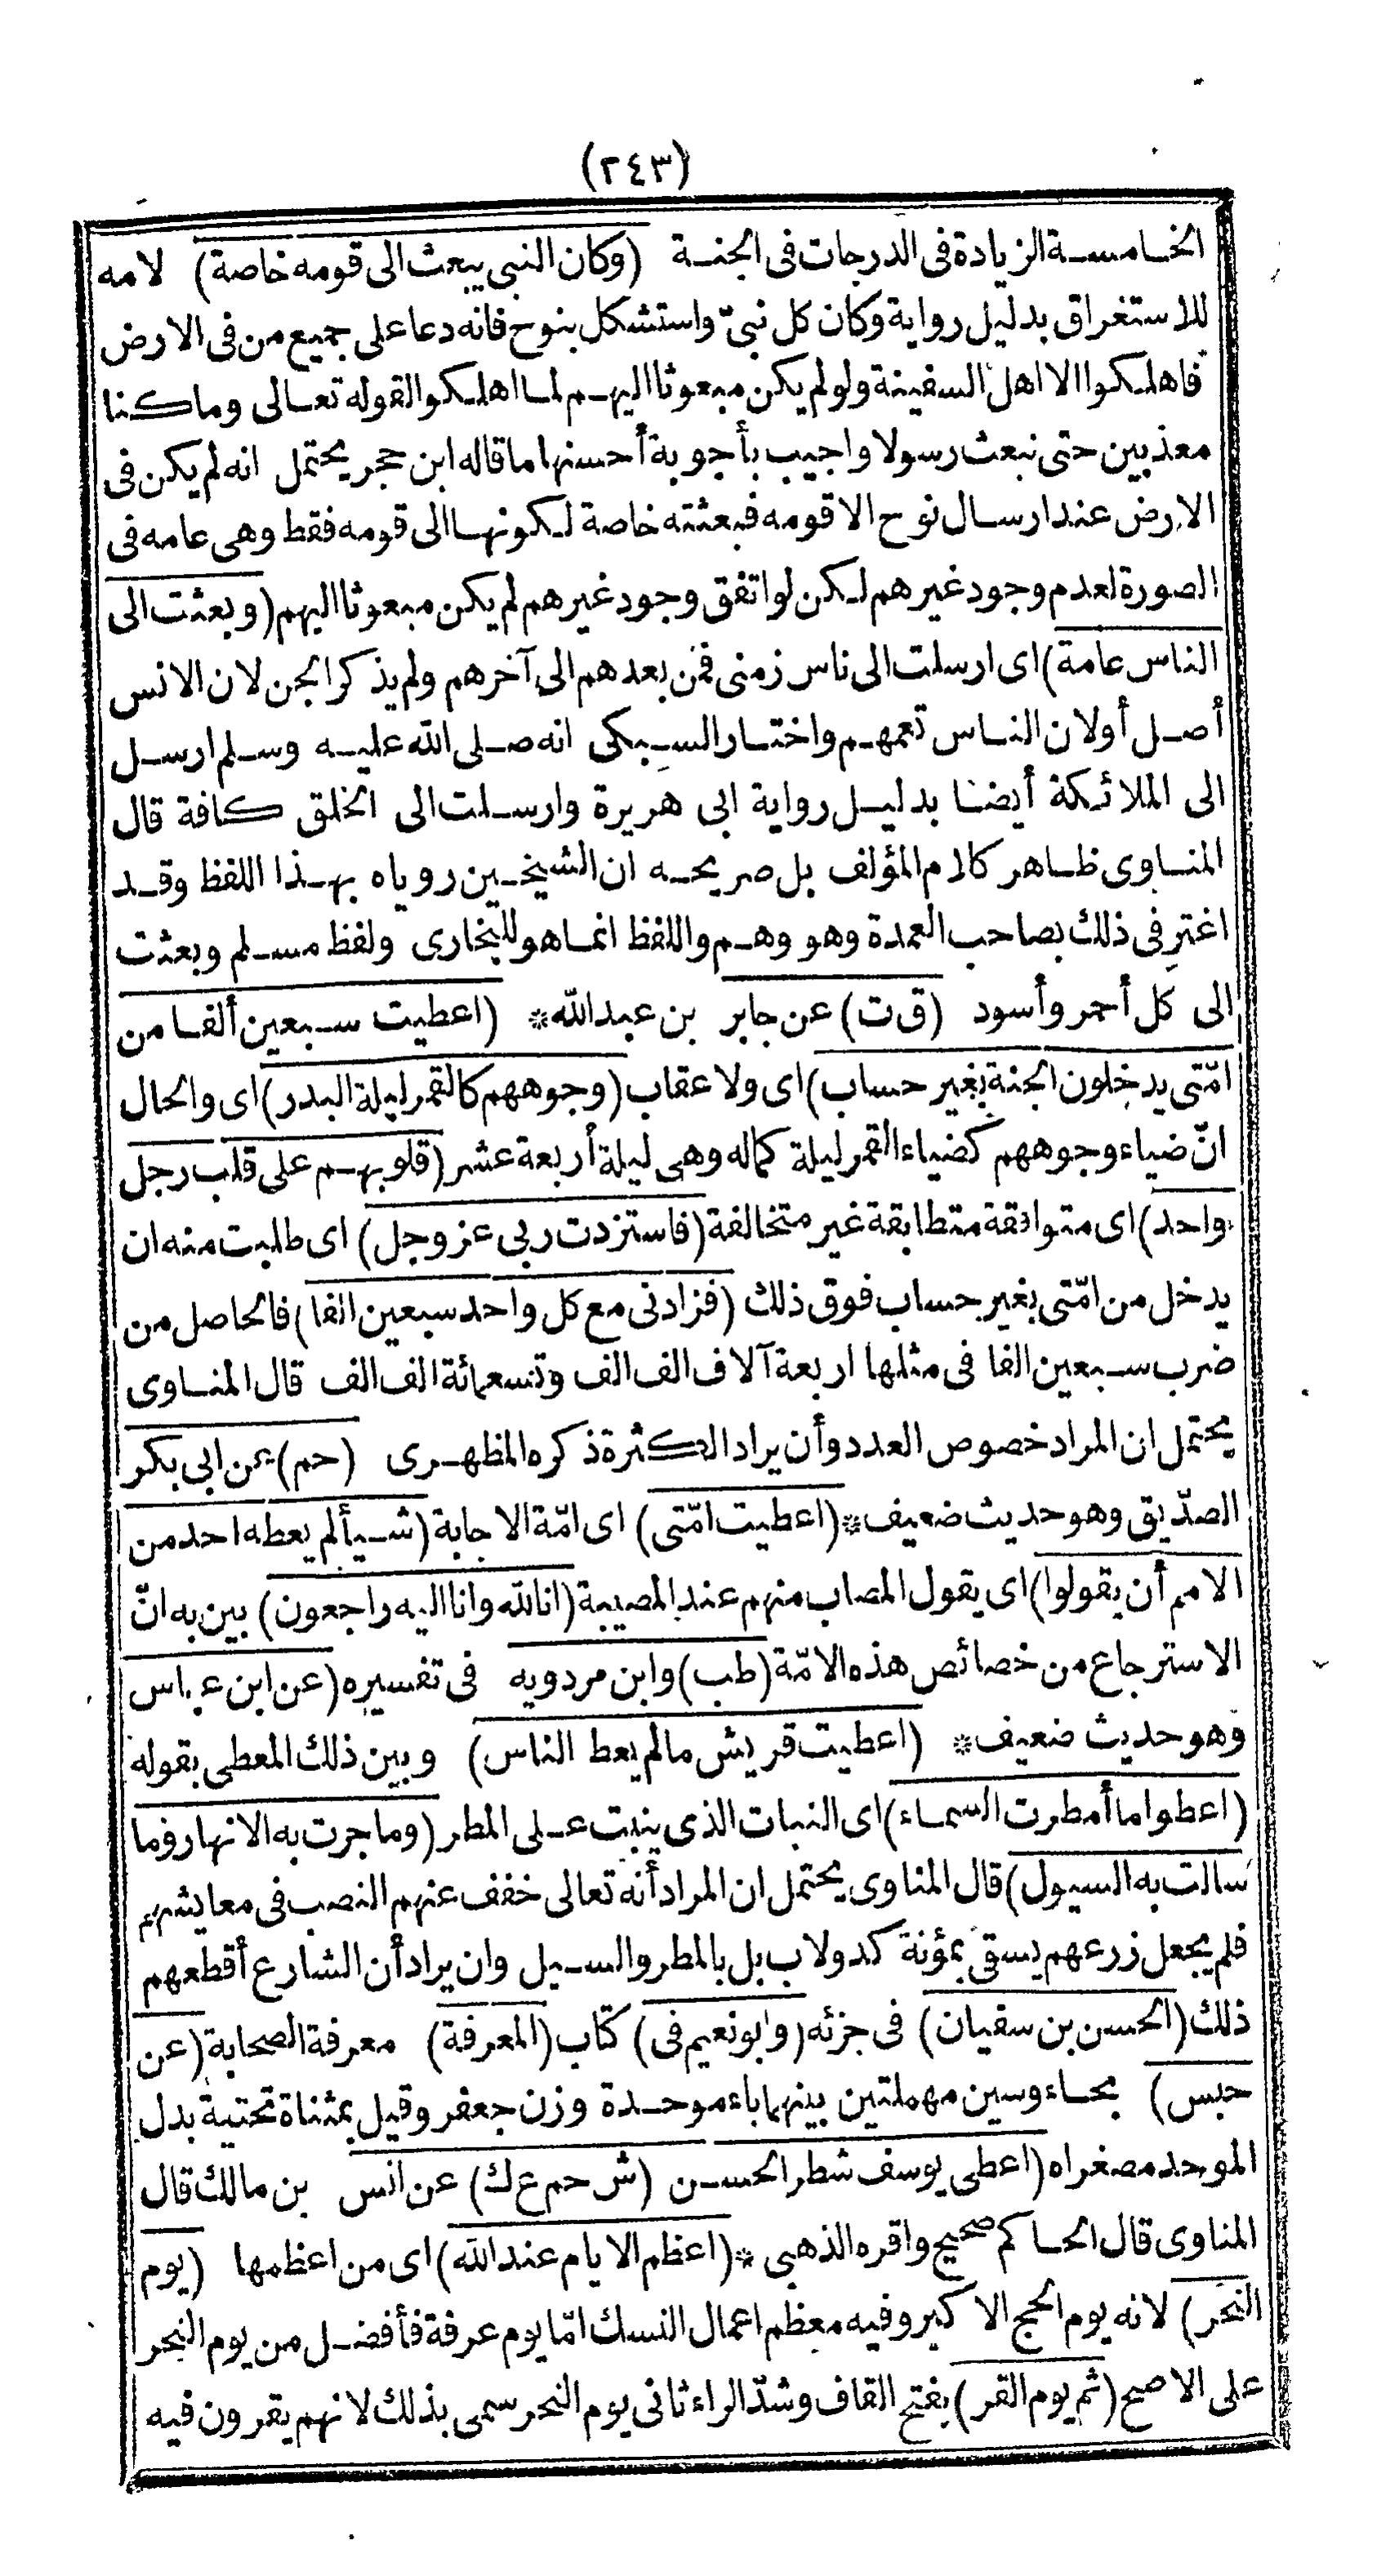 (٢٤٣)
الخامسة الزيادة فى الدرجات فى الجنة (وكان النبى يبعث الى قومه خاصة) لامه
للاستغراق بدليل رواية وكان كل نبىّ واستشكل بنوح فانه دعا على جميع من فى الارض
فاهلكوا الا اهل السفينة ولو لم يكن مبعوثا اليهم لما اهلكوا لقوله تعالى وما كنا
معذبين حتى نبعث رسولا واجيب بأجوبة أحسنها ما قاله ابن حجر يحتمل انه لم يكن فى
الارض عند ارسال نوح الا قومه فبعثته خاصة لكونها الى قومه فقط وهى عامه فى
الصورة لعدم وجود غيرهم لكن لو اتفق وجود غيرهم لم يكن مبعوثا اليهم (وبعثت الى
الناس عامة) اى ارسلت الى ناس زمنى فمن بعدهم الى آخرهم ولم يذكر الجن لان الانس
أصل أولان الناس تعمهم واختار السبكى انه صلى الله عليه وسلم ارسل
الى الملائكة أيضا بدليل رواية ابى هريرة وارسلت الى الخلق كافة قال
المناوى ظاهر كلام المؤلف بل صريحه ان الشيخين روياه بهذا اللفظ وقد
اغتر فى ذلك بصاحب العمدة وهو وهم واللفظ انما هو للبخارى ولفظ مسلم وبعثت
الى كل أحمر وأسود (ق ت) عن جابر بن عبد الله* (اعطيت سبعين ألفا من
امّتى يدخلون الجنة بغير حساب) اى ولا عقاب (وجوههم كالقمر ليلة البدر) اى والحال
انّ ضياء وجوههم كضياء القمر ليلة كماله وهى ليلة أربعة عشر (قلوبهم على قلب رجل
واحد) اى متوافقة متطابقة غير متخالفة (فاستزدت ربى عز وجل) اى طلبت منه ان
يدخل من امّتى بغير حساب فوق ذلك (فزادنى مع كل واحد سبعين الفا) فالحاصل من
ضرب سبعين الفا فى مثلها اربعة آلاف الف الف وتسعمائة الف الف قال المناوى
يحتمل ان المراد خصوص العدد وأن يراد الكثرة ذكره المظهرى (حم) عن ابى بكر
الصدّيق وهو حديث ضعيف* (اعطيت امّتى) اى امّة الاجابة (شيألم يعطه احد من
الامم أن يقولوا) اى يقول المصاب منهم عند المصيبة (انا لله وانا اليه راجعون) بين به انّ
الاسترجاع من خصائص هذه الامّة (طب) وابن مردويه فى تفسيره (عن ابن عباس
وهو حديث ضعيف* (اعطيت قريش مالم يعط الناس) وبين ذلك المعطى بقوله
(اعطوا ما أمطرت السماء) اى النبات الذى ينبت على المطر (وما جرت به الانهار وما
سالت به السيول) قال المناوى يحتمل ان المراد أنه تعالى خفف عنهم النصب فى معايشهم
فلم يجعل زرعهم يسقى بمؤنة كدولاب بل بالمطر والسيل وان يراد أن الشارع أقطعهم
ذلك (الحسن بن سفيان) فى جزئه (وابو نعيم فى) كتاب (المعرفة) معرفة الصحابة (عن
حبس) بحاء وسين مهملتين بينهما باء موحدة وزن جعفر وقيل بمثناة تحتية بدل
الموحد مصغراه (اعطى يوسف شطر الحسن (ش حم ع ك) عن انس بن مالك قال
المناوى قال الحاكم صحيح واقره الذهبى* (اعظم الايام عند الله) اى من اعظمها (يوم
النحر) لانه يوم الحج الاكبر وفيه معظم اعمال النسك امّا يوم عرفة فأفضل من يوم النحر
على الاصح (ثم يوم القر) بفتح القاف وشدّ الراء ثانى يوم النحر سمى بذلك لانهم يقرون فيه